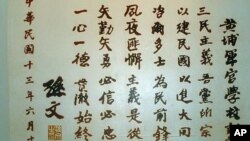 黃埔軍官學校
三民主義吾黨所宗
以建民國以進大同
咨爾多士為民前鋒
夙夜匪懈主義是從
矢勤矢勇必信必忠
一心一德貫徹始終
孫文
中華民國十三年六月十
AP